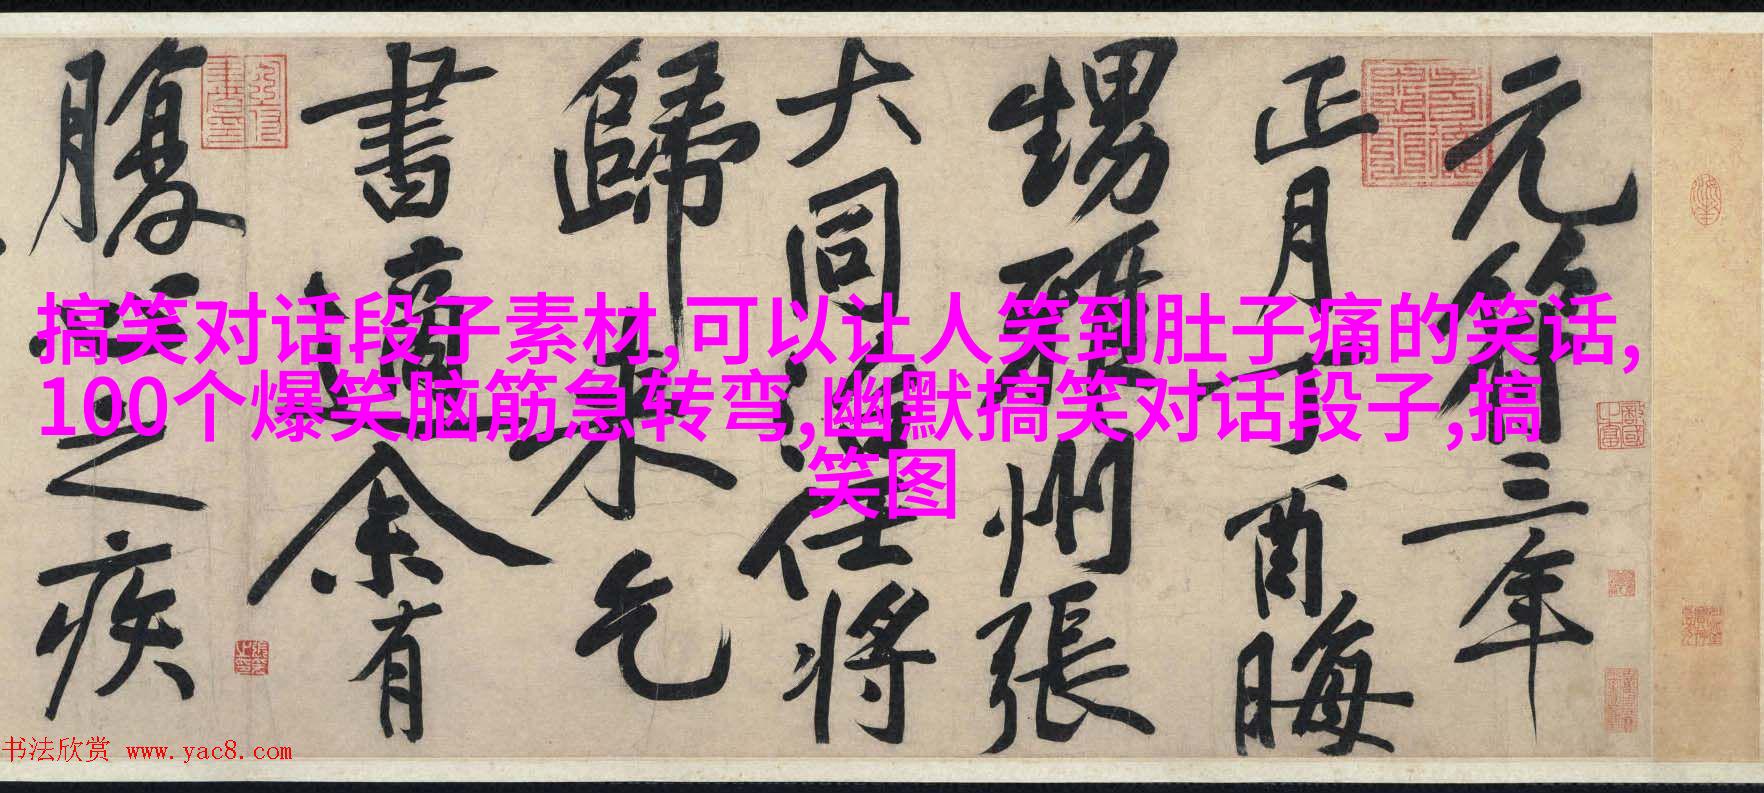 搞笑对话段子素材,可以让人笑到肚子痛的笑话,
100个爆笑脑筋急转弯,幽默搞笑对话段子,搞
笑图
元符三年
正月丁酉晦
甥雅州張
大同治任將
歸來乞
書適余有
腹心之疾
书法欣赏 www.yac8.com